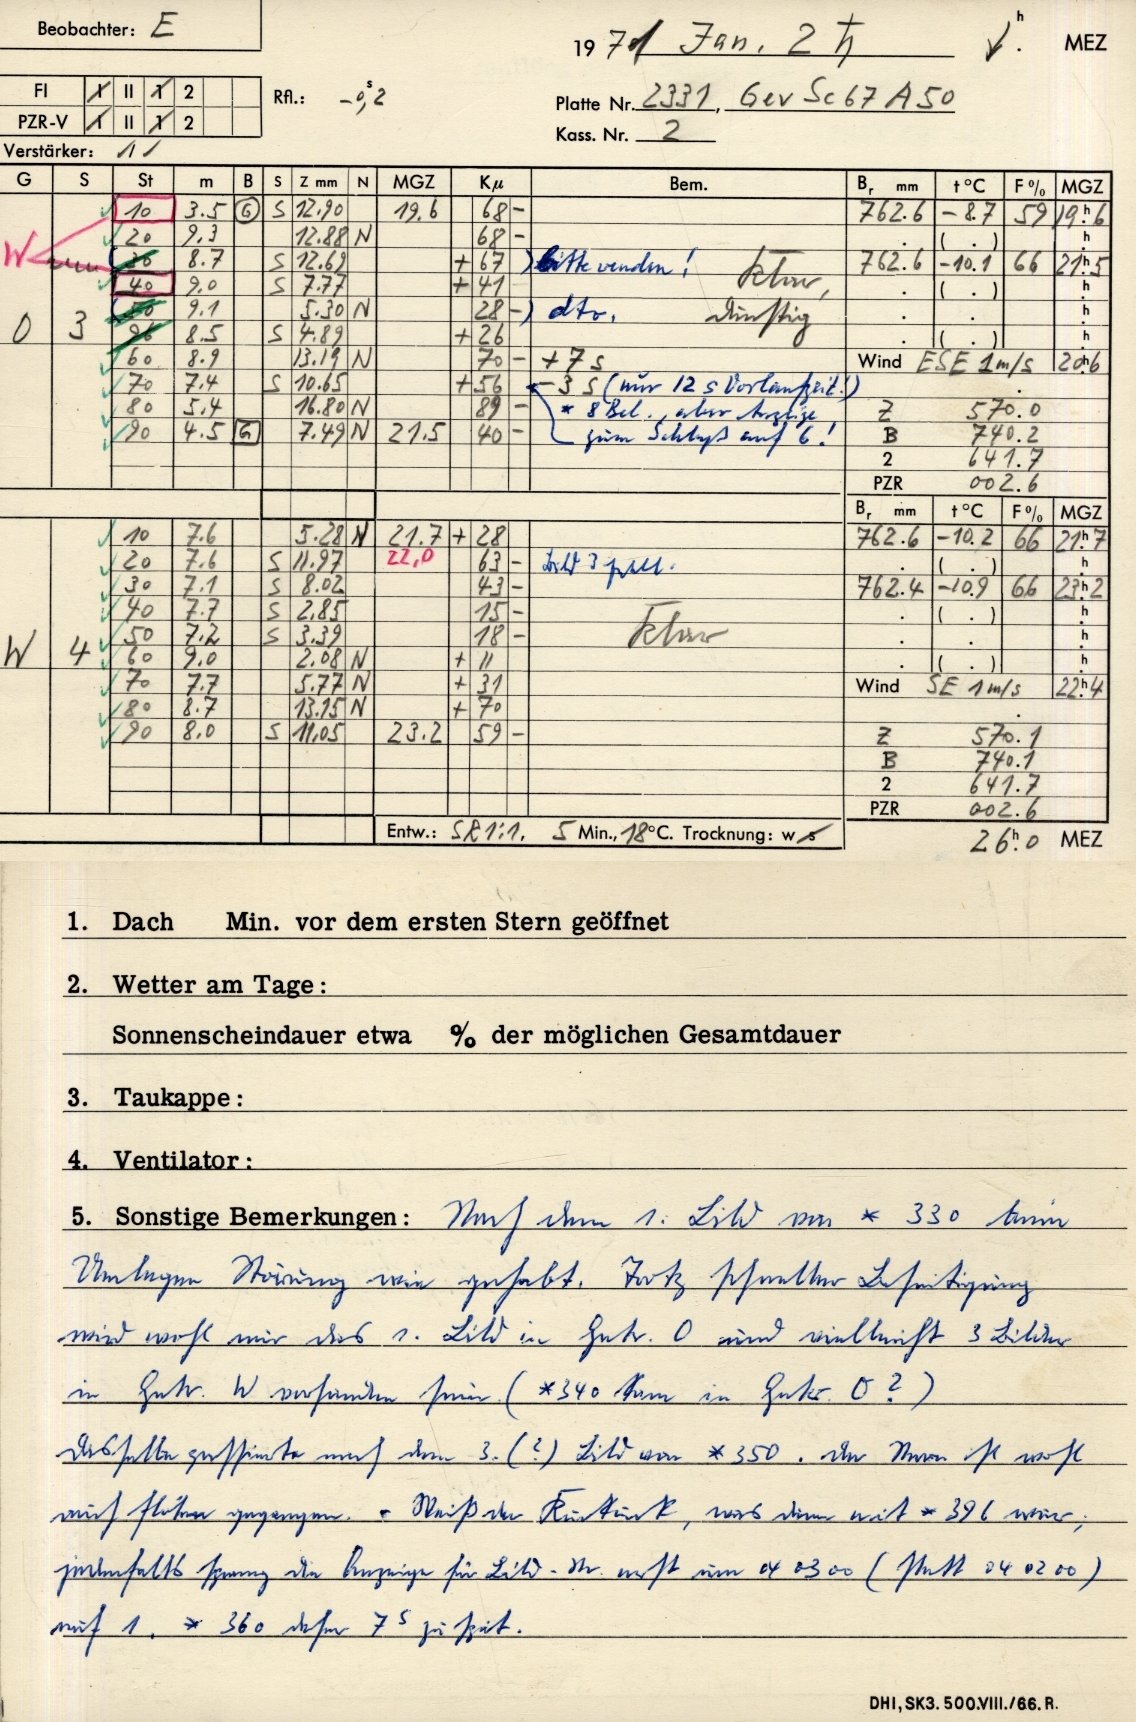 Beobachter: E
1971 Jan. 2 ♄ h . MEZ
FI I II 1 2
PZR-V I II 1 2
Rfl.: -0,s2
Platte Nr. 2331, Gev Sc 67 A 50
Kass. Nr. 2
Verstärker: 11
G S St m B S Z mm N MGZ Kμ Bem. Br mm t°C F% MGZ
10 3.5 G S 12.90 19.6 68- 762.6 -8.7 59 19h6
20 9.3 12.88 N 68- . ( . ) h
W 30 8.7 S 12.69 +67 ) bitte wenden! klar, 762.6 -10.1 66 21h5
40 9.0 S 7.77 +41 . ( . ) h
O 3 50 9.1 5.30 N 28- ) dto. dunstig . . h
96 8.5 S 4.89 +26 . ( . ) h
60 8.9 13.19 N 70- +7s Wind ESE 1m/s 20h6
70 7.4 S 10.65 +56 -3s (nur 12s Vorlaufzeit!)
80 5.4 16.80 N 89- * 8 Bel., aber Anzeige Z 570.0
90 4.5 G 7.49 N 21.5 40- zum Schluß auf 6! B 740.2
2 641.7
PZR 002.6
Br mm t°C F% MGZ
10 7.6 5.28 N 21.7 +28 762.6 -10.2 66 21h7
20 7.6 S 11.97 22,0 63- Bild 3 fehlt. . ( . ) h
30 7.1 S 8.02 43- 762.4 -10.9 66 23h2
40 7.7 S 2.85 15- . ( . ) h
50 7.2 S 3.39 18- klar . . h
W 4 60 9.0 2.08 N +11 . ( . ) h
70 7.7 5.77 N +31 Wind SE 1m/s 22h4
80 8.7 13.15 N +70
90 8.0 S 11.05 23.2 59- Z 570.1
B 740.1
2 641.7
PZR 002.6
Entw.: SR 1:1, 5 Min., 18°C. Trocknung: w s
26h0 MEZ
1. Dach Min. vor dem ersten Stern geöffnet
2. Wetter am Tage:
Sonnenscheindauer etwa % der möglichen Gesamtdauer
3. Taukappe:
4. Ventilator:
5. Sonstige Bemerkungen: Nach dem 1. Bild von * 330 beim
Umlegen Störung wie gehabt. Trotz schneller Beseitigung
wird wohl nur das 1. Bild in O und vielleicht 3 Bilder
in W vorhanden sein. (*340 kam in O?)
Dasselbe passierte nach dem 3.(?) Bild von *350. Der Stern ist wohl
auch flöten gegangen. - Weiß der Kuckuck, was dann mit * 396 war;
jedenfalls sprang die Anzeige für Bild-Nr. erst um 04 03 00 (statt 04 02 00)
auf 1. * 360 daher 7s zu spät.
DHI, SK3. 500.VIII./66. R.